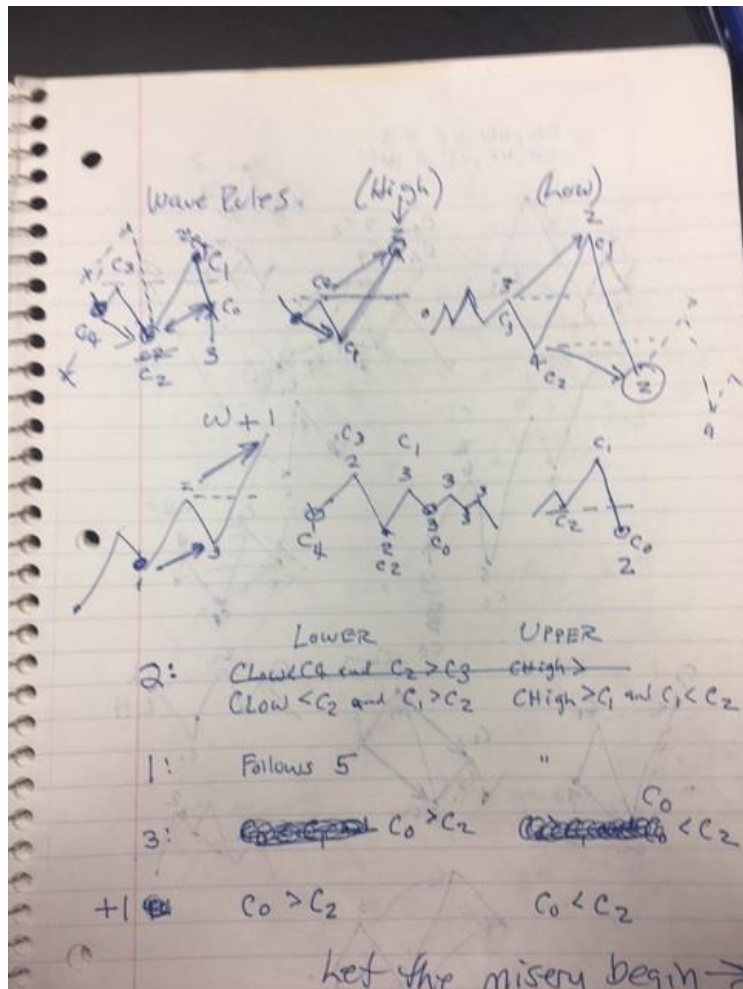 Wave Rules. (High) (Low)
2
C1
X C3 C1 C2 3 C1
C4 C0 C3
X C2 3 C2 2
W+1
C3 C1 C1
2 2 3 3 3
C4 3 C2 C0
1 3 2 C0 2
C2
LOWER UPPER
2: CLow<C4 and C2>C3 CHigh>
CLow<C2 and C1>C2 CHigh>C1 and C1<C2
1: Follows 5 "
C0
3: C0>C2 <C2
+1 C0>C2 C0<C2
Let the misery begin→